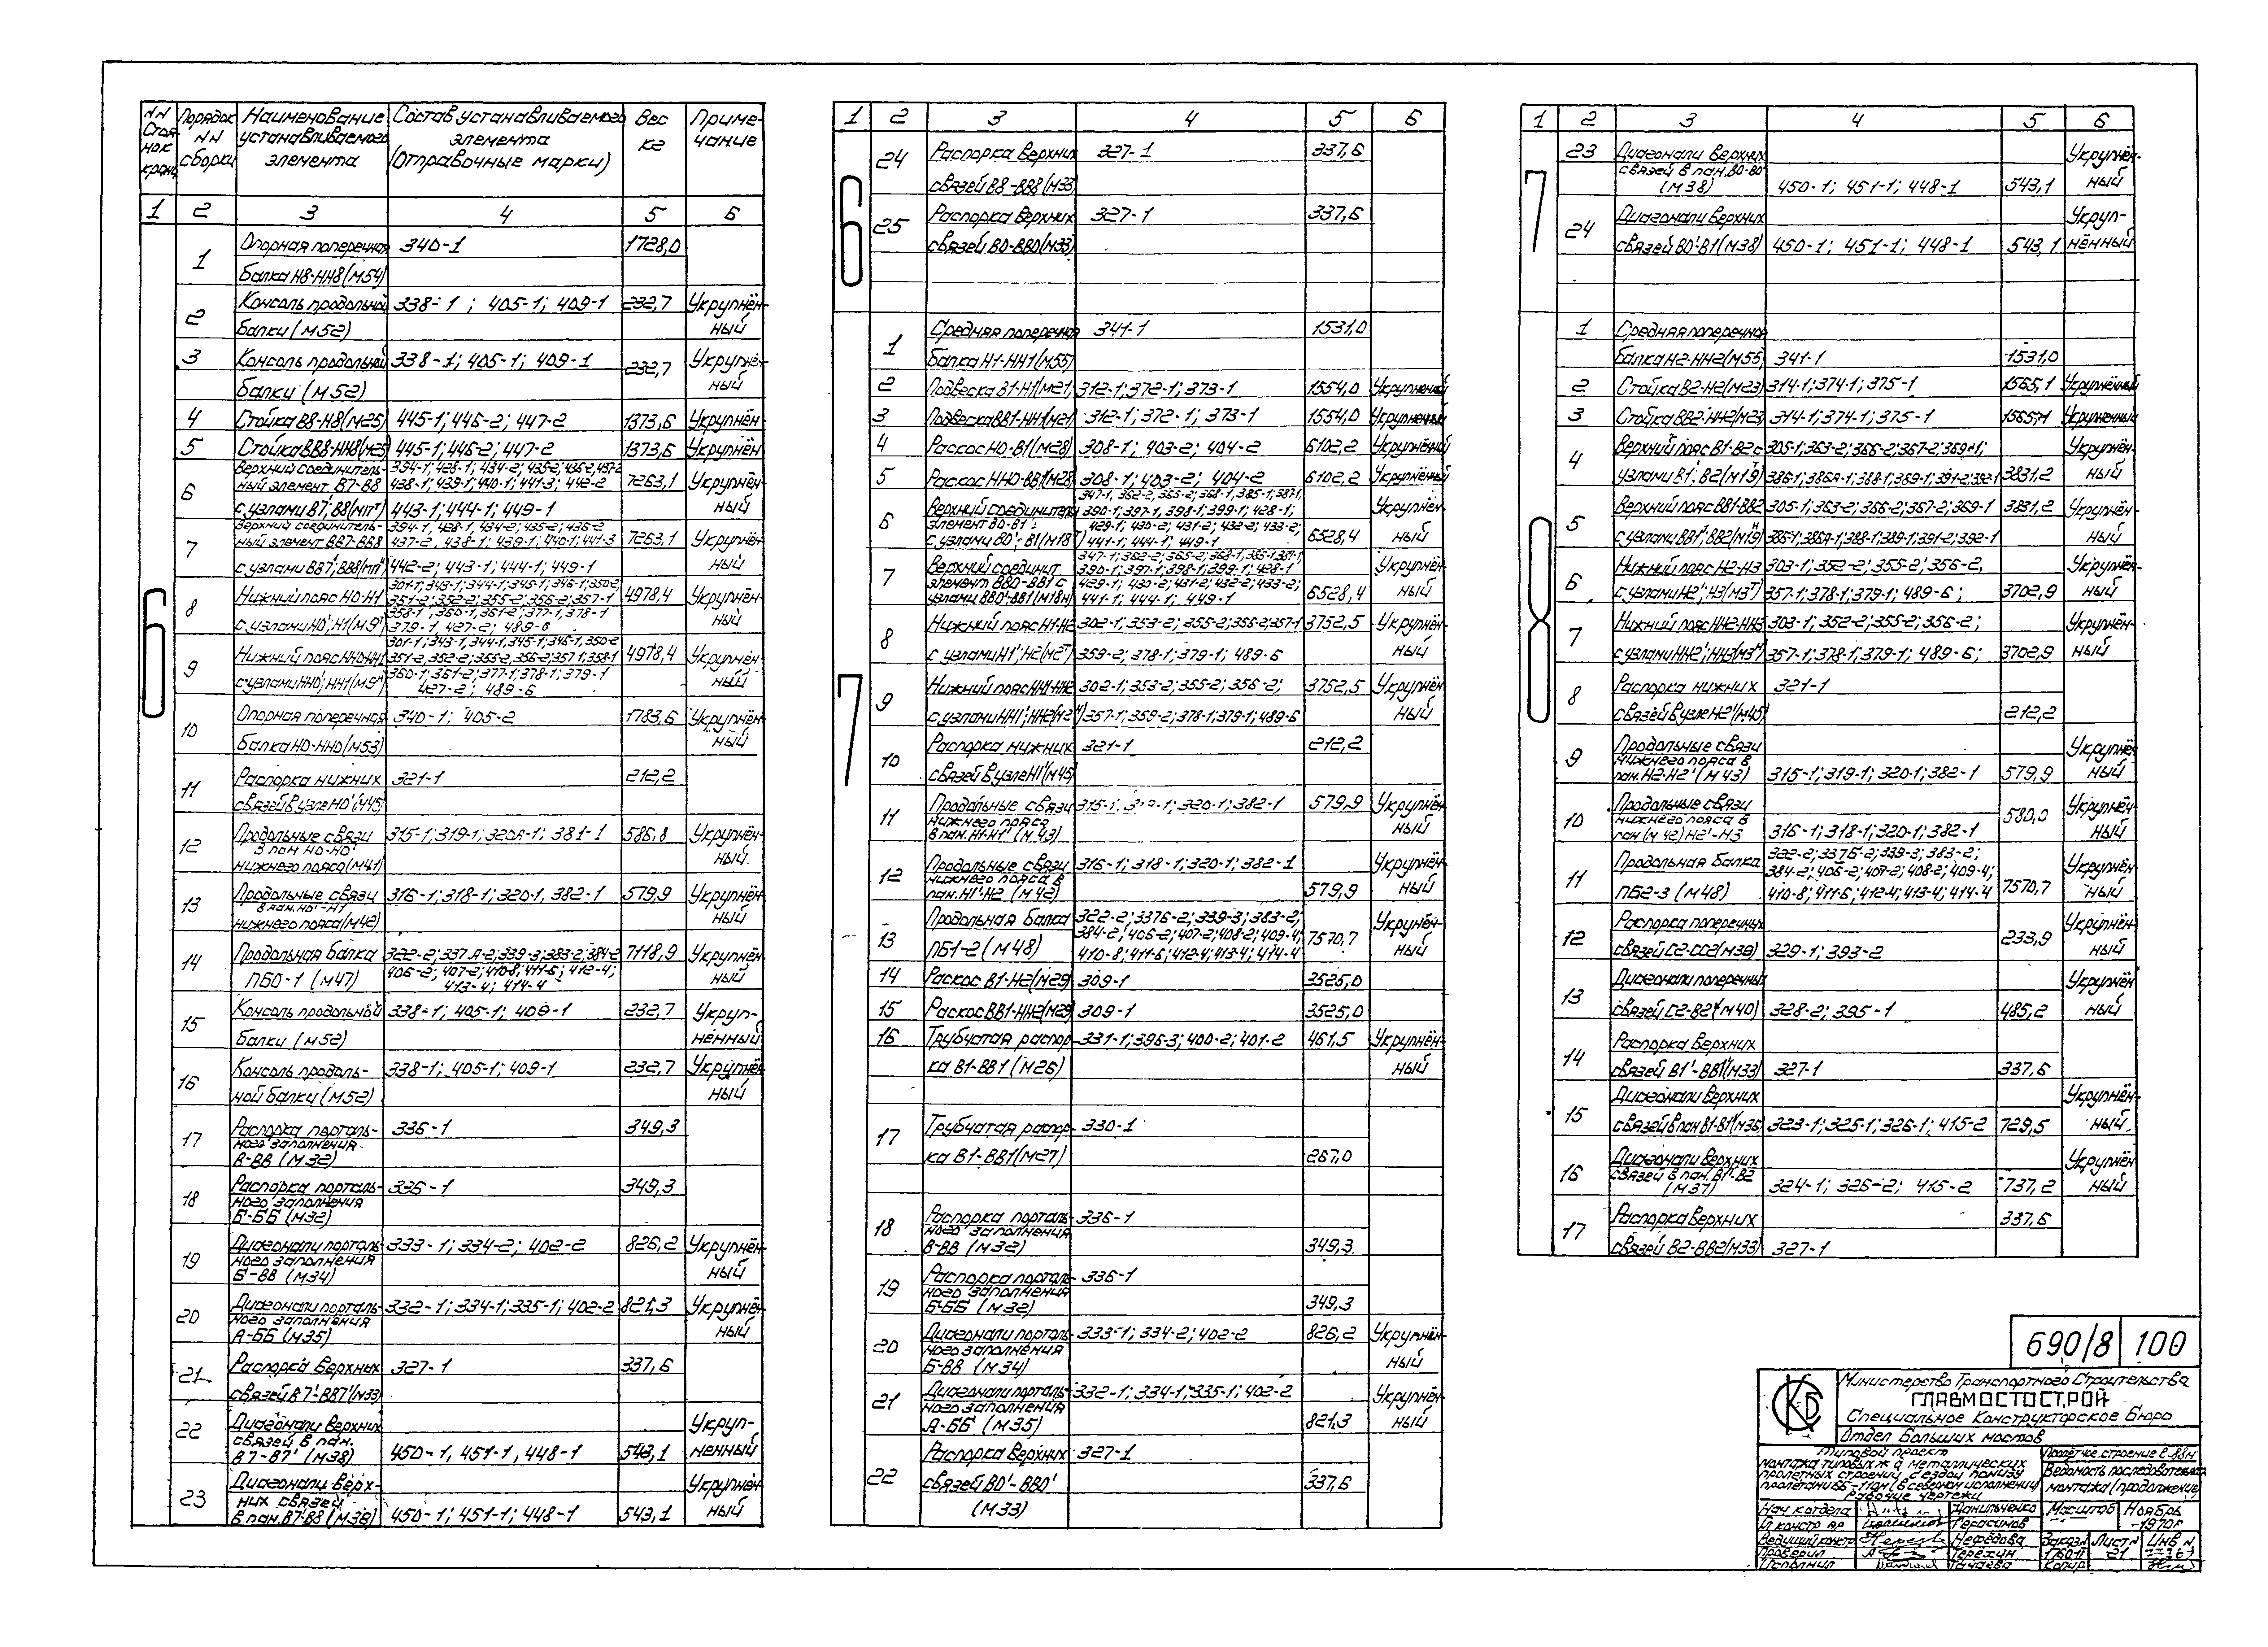 NN Стоянок крана | Порядок NN сборки | Наименование устанавливаемого элемента | Состав устанавливаемого элемента (Отправочные марки) | Вес кг | Примечание
1 | 2 | 3 | 4 | 5 | 6
6
1 | Опорная поперечная | 340-1 | 1728,0
балка Н8-НН8 (М54)
2 | Консоль продольной | 338-1 ; 405-1; 409-1 | 232,7 | Укрупнён-
балки (М52) | ный
3 | Консоль продольной | 338-1; 405-1; 409-1 | 232,7 | Укрупнён-
балки (М52) | ный
4 | Стойка В8-Н8 (М25) | 445-1; 446-2; 447-2 | 1373,6 | Укрупнён
5 | Стойка ВВ8-НН8 (М25) | 445-1; 446-2; 447-2 | 1373,6 | Укрупнён
6 | Верхний соединитель- | 394-1; 428-1; 434-2; 435-2; 436-2; 437-2
ный элемент В7-В8 | 438-1; 439-1; 440-1; 441-3; 442-2 | 7263,1 | Укрупнён-
с узлами В7'; В8 | 443-1; 444-1; 449-1 | ный
7 | Верхний соединитель- | 394-1, 428-1, 434-2; 435-2; 436-2
ный элемент ВВ7-ВВ8 | 437-2, 438-1; 439-1; 440-1; 441-3 | 7263,1 | Укрупнён-
с узлами ВВ7'; ВВ8 | 442-2; 443-1; 444-1; 449-1 | ный
8 | 301-1; 343-1; 344-1; 345-1; 346-1; 350-2;
Нижний пояс Н0-Н1 | 351-2; 352-2; 355-2; 356-2; 357-1 | 4978,4 | Укрупнён-
358-1; 360-1; 361-2; 377-1; 378-1 | ный
с узлами Н0'; Н1 | 379-1 427-2; 489-6
9 | 301-1; 343-1; 344-1; 345-1; 346-1, 350-2
Нижний пояс НН0-НН1 | 351-2, 352-2; 355-2, 356-2; 357-1; 358-1 | 4978,4 | Укрупнён-
360-1; 361-2; 377-1; 378-1; 379-1 | ный
с узлами НН0'; НН1 | 427-2; 489-6
10 | Опорная поперечная | 340-1; 405-2 | 1783,6 | Укрупнён-
балка Н0-НН0 (М53) | ный
11 | Распорка нижних | 321-1 | 212,2
связей в узле Н0' (М45)
12 | Продольные связи | 315-1; 319-1; 320А-1; 381-1 | 586,8 | Укрупнён-
в пан Н0-Н0' | ный
нижнего пояса (М41)
13 | Продольные связи | 316-1; 318-1; 320-1, 382-1 | 579,9 | Укрупнён-
в пан. Н0'-Н1 | ный
нижнего пояса (М42)
14 | Продольная балка | 322-2; 337А-2; 339-3; 383-2; 384-2 | 7118,9 | Укрупнён-
ПБ0-1 (М47) | 406-2; 407-2; 410-8; 411-6; 412-4; | ный
413-4; 414-4
15 | Консоль продольной | 338-1; 405-1; 409-1 | 232,7 | Укруп-
балки (М52) | ненный
16 | Консоль продоль- | 338-1; 405-1; 409-1 | 232,7 | Укрупнён
ной балки (М52) | ный
17 | Распорка порталь- | 336-1 | 349,3
ного заполнения
В-ВВ (М32)
18 | Распорка порталь- | 336-1 | 349,3
ного заполнения
Б-ББ (М32)
19 | Диагонали порталь- | 333-1; 334-2; 402-2 | 826,2 | Укрупнён-
ного заполнения | ный
Б-ВВ (М34)
20 | Диагонали порталь- | 332-1; 334-1; 335-1; 402-2 | 821,3 | Укрупнён-
ного заполнения | ный
А-ББ (М35)
21 | Распорка верхних | 327-1 | 337,6
связей В7'-ВВ7' (М33)
22 | Диагонали верхних | Укруп-
связей в пан. | ненный
В7-В7' (М38) | 450-1, 451-1, 448-1 | 543,1
23 | Диагонали верх- | Укрупнён-
них связей | ный
в пан. В7'-В8 (М38) | 450-1; 451-1; 448-1 | 543,1
1 | 2 | 3 | 4 | 5 | 6
6
24 | Распорка верхних | 327-1 | 337,6
связей В8-ВВ8 (М33)
25 | Распорка верхних | 327-1 | 337,6
связей В0-ВВ0 (М33)
7
1 | Средняя поперечная | 341-1 | 1531,0
балка Н1-НН1 (М55)
2 | Подвеска В1-Н1 (М21) | 312-1; 372-1; 373-1 | 1554,0 | Укрупнённый
3 | Подвеска ВВ1-НН1 (М21) | 312-1; 372-1; 373-1 | 1554,0 | Укрупненный
4 | Раскос Н0-В1 (М28) | 308-1; 403-2; 404-2 | 6102,2 | Укрупнённый
5 | Раскос НН0-ВВ1 (М28) | 308-1; 403-2; 404-2 | 6102,2 | Укрупнённый
6 | 347-1, 362-2, 365-2; 368-1, 385-1; 387-1,
Верхний соединитель | 390-1; 397-1, 398-1; 399-1; 428-1; | Укрупнён-
элемент В0-В1 | 429-1, 430-2; 431-2; 432-2; 433-2; | ный
с узлами В0'; В1 | 441-1; 444-1; 449-1 | 6528,4
7 | 347-1; 362-2; 365-2; 368-1, 385-1, 387-1
Верхний соединит | 390-1; 397-1; 398-1; 399-1; 428-1 | Укрупнён-
элемент ВВ0-ВВ1 с | 429-1; 430-2; 431-2; 432-2; 433-2; | ный
узлами ВВ0'-ВВ1 | 441-1; 444-1; 449-1 | 6528,4
8 | Нижний пояс Н1-Н2 | 302-1; 353-2; 355-2; 356-2; 357-1 | 3752,5 | Укрупнён-
с узлами Н1'; Н2 | 359-2; 378-1; 379-1; 489-6 | ный
9 | Нижний пояс НН1-НН2 | 302-1; 353-2; 355-2; 356-2; | 3752,5 | Укрупнён-
с узлами НН1'; НН2 | 357-1; 359-2; 378-1; 379-1; 489-6 | ный
10 | Распорка нижних | 321-1 | 212,2
связей в узле Н1' (М45)
11 | Продольные связи | 315-1; 319-1; 320-1; 382-1 | 579,9 | Укрупнён-
нижнего пояса | ный
в пан. Н1-Н1' (М43)
12 | Продольные связи | 316-1; 318-1; 320-1; 382-1 | Укрупнён-
нижнего пояса в | ный
пан. Н1'-Н2 (М42) | 579,9
13 | Продольная балка | 322-2; 337Б-2; 339-3; 383-2; | Укрупнён-
384-2; 406-2; 407-2; 408-2; 409-4; | 7570,7
ПБ1-2 (М48) | 410-8; 411-6; 412-4; 413-4; 414-4 | ный
14 | Раскос В1-Н2 (М29) | 309-1 | 3525,0
15 | Раскос ВВ1-НН2 (М29) | 309-1 | 3525,0
16 | Трубчатая распор- | 331-1; 396-3; 400-2; 401-2 | 461,5 | Укрупнён-
ка В1-ВВ1 (М26) | ный
17 | Трубчатая распор- | 330-1
ка В1-ВВ1 (М27) | 267,0
18 | Распорка порталь- | 336-1
ного заполнения
В-ВВ (М32) | 349,3
19 | Распорка порталь- | 336-1
ного заполнения
Б-ББ (М32) | 349,3
20 | Диагонали порталь- | 333-1; 334-2; 402-2 | 826,2 | Укрупнён-
ного заполнения | ный
Б-ВВ (М34)
21 | Диагонали порталь- | 332-1; 334-1; 335-1; 402-2 | Укрупнён-
ного заполнения | ный
А-ББ (М35) | 821,3
22 | Распорка верхних | 327-1
связей В0'-ВВ0' | 337,6
(М33)
1 | 2 | 3 | 4 | 5 | 6
7
23 | Диагонали верхних | Укрупнён-
связей в пан. В0-В0' | ный
(М38) | 450-1; 451-1; 448-1 | 543,1
24 | Диагонали верхн | Укруп-
связей В0'-В1 (М38) | 450-1; 451-1; 448-1 | 543,1 | нённый
8
1 | Средняя поперечная
балка Н2-НН2 (М55) | 341-1 | 1531,0
2 | Стойка В2-Н2 (М23) | 314-1; 374-1; 375-1 | 1565,1 | Укрупнённый
3 | Стойка ВВ2-НН2 (М23) | 314-1; 374-1; 375-1 | 1565,1 | Укрупненный
4 | Верхний пояс В1-В2 с | 305-1; 363-2; 366-2; 367-2; 369-1; | Укрупнён-
узлами В1'; В2 | 386-1; 386А-1; 388-1; 389-1; 391-2; 392-1 | 3831,2 | ный
5 | Верхний пояс ВВ1-ВВ2 | 305-1; 363-2; 366-2; 367-2; 369-1 | 3831,2 | Укрупнён-
с узлами ВВ1'; ВВ2 | 386-1; 386А-1; 388-1; 389-1; 391-2; 392-1 | ный
6 | Нижний пояс Н2-Н3 | 303-1; 352-2; 355-2; 356-2, | Укрупнён-
с узлами Н2'; Н3 | 357-1; 378-1; 379-1; 489-6; | 3702,9 | ный
7 | Нижний пояс НН2-НН3 | 303-1; 352-2; 355-2; 356-2; | Укрупнён-
с узлами НН2'; НН3 | 357-1; 378-1; 379-1; 489-6; | 3702,9 | ный
8 | Распорка нижних | 321-1
связей в узле Н2' (М45) | 212,2
9 | Продольные связи | Укрупнён
нижнего пояса в | ный
пан. Н2-Н2' (М43) | 315-1; 319-1; 320-1; 382-1 | 579,9
10 | Продольные связи | Укрупнён-
нижнего пояса в | 580,0 | ный
пан (М42) Н2'-Н3 | 316-1; 318-1; 320-1; 382-1
11 | 322-2; 337Б-2; 339-3; 383-2;
Продольная балка | 384-2; 406-2; 407-2; 408-2; 409-4; | Укрупнён-
ПБ2-3 (М48) | 410-8; 411-6; 412-4; 413-4; 414-4 | 7570,7 | ный
12 | Распорка поперечных | Укрупнён-
связей С2-СС2 | 329-1; 393-2 | 233,9 | ный
13 | Диагонали поперечных | Укрупнён
связей С2-В2 (М40) | 328-2; 395-1 | 485,2 | ный
14 | Распорка верхних
связей В1'-ВВ1' (М33) | 327-1 | 337,6
15 | Диагонали верхних | Укрупнён-
связей в пан В1-В1' | 323-1; 325-1; 326-1; 415-2 | 729,5 | ный
16 | Диагонали верхних | Укрупнён
связей в пан. В1'-В2
(М37) | 324-1; 326-2; 415-2 | 737,2 | ный
17 | Распорка верхних | 337,6
связей В2-ВВ2 (М33) | 327-1
690/8 | 100
СКБ
Министерство Транспортного Строительства
ГЛАВМОСТОСТРОЙ
Специальное Конструкторское Бюро
Отдел больших мостов
Типовой проект
монтажа типовых ж д металлических
пролетных строений с ездой понизу
пролетами 66-110м (в северном исполнении)
Рабочие чертежи
Пролётное строение ℓ-88м
Ведомость последовательн
монтажа (продолжение)
Нач котдела | Данильченко | Масштаб | Ноябрь
Гл констр пр | Герасимов | 1970г
Ведущий констр | Нефёдова | Заказ N | Лист N | Инв N
Проверил | Терехин | 21
Исполнил | Копир